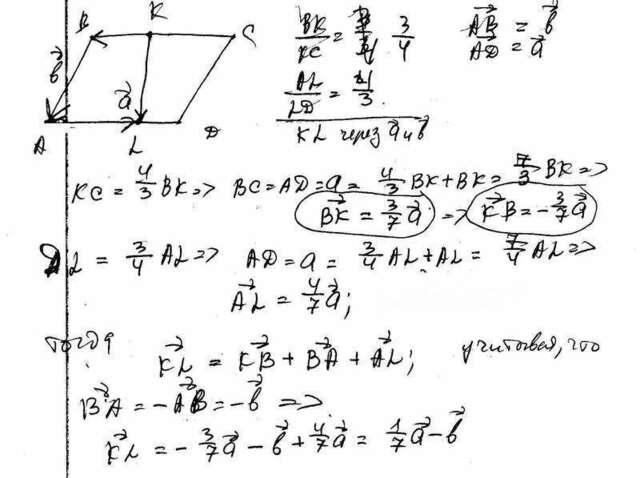 B K C
b⃗ a⃗
A L D
BK/KC = 3/4 AB⃗ = b⃗
AD⃗ = a⃗
AL/LD = 4/3
KL через a⃗ и b⃗
KC = 4/3 BK => BC = AD = a = 4/3 BK + BK = 7/3 BK =>
BK⃗ = 3/7 a⃗ => KB⃗ = -3/7 a⃗
DL = 3/4 AL => AD = a = 3/4 AL + AL = 7/4 AL =>
AL⃗ = 4/7 a⃗;
тогда KL⃗ = KB⃗ + BA⃗ + AL⃗; учитывая, что
BA⃗ = -AB⃗ = -b⃗ =>
KL⃗ = -3/7 a⃗ - b⃗ + 4/7 a⃗ = 1/7 a⃗ - b⃗